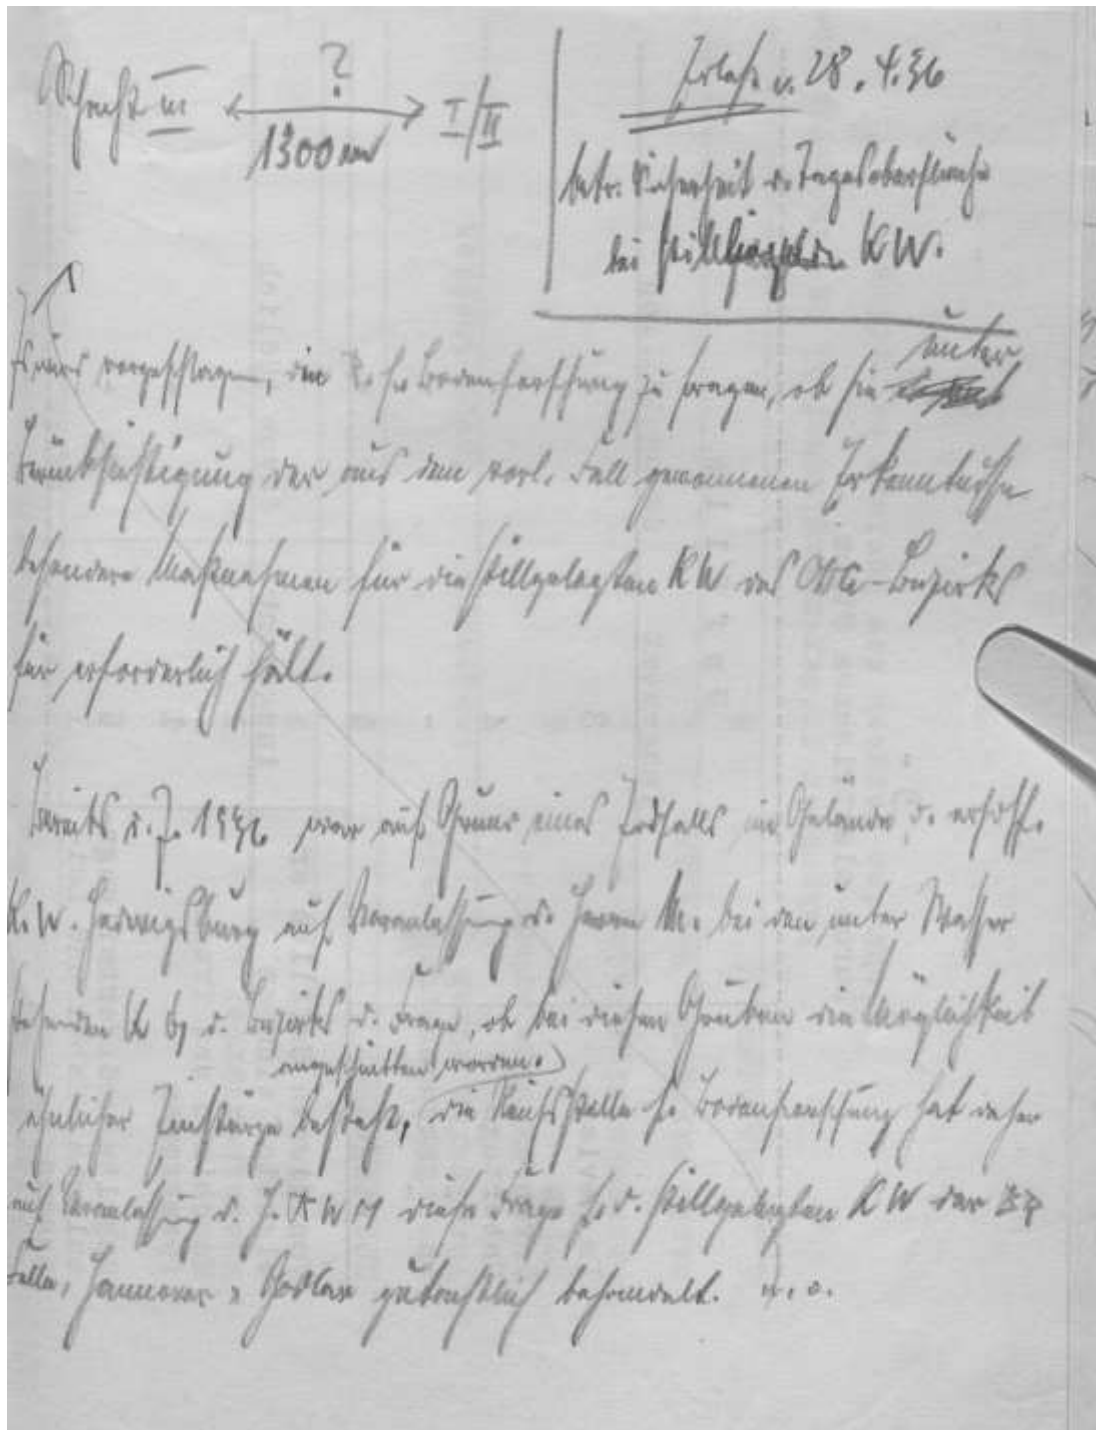 Schacht III ? I/II
1300 m
Erlaß v. 28.4.36
betr. Sicherheit d. Tagesoberfläche
bei stillgelegten KW.
Es wird vorgeschlagen, die R. f. Bodenforschung zu fragen, ob sie unter
Berücksichtigung der aus dem vorl. Fall gewonnenen Erkenntnisse
besondere Maßnahmen für die stillgelegten KW des OBA-Bezirks
für erforderlich hält.
Bereits i. J. 1936 war auf Grund eines Erdfalls im Gelände d. ersoff.
K.W. Hedwigsburg auf Veranlassung d. Herrn M. bei den unter Wasser
stehenden d. Bezirks d. Frage, ob bei diesen Gruben die Möglichkeit
angeschnitten worden.
ähnlicher Einstürze besteht, die Reichsstelle f. Bodenforschung hat daher
auf Veranlassung d. H. RWM diese Frage f. d. stillgelegten KW der BR
Celle, Hannover u. Goslar gutachtlich behandelt.